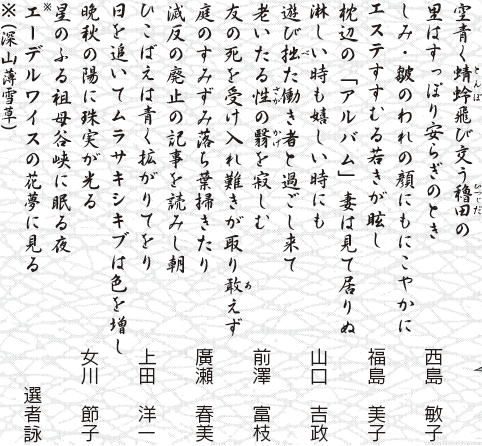 とんぼ ひつじだ
空青く蜻蛉飛び交う穭田の
里はすっぽり安らぎのとき 西島 敏子
しみ・皺のわれの顔にもにこやかに
エステすすむる若きが眩し 福島 美子
枕辺の「アルバム」妻は見て居りぬ
淋しい時も嬉しい時にも 山口 吉政
べ
遊び拙た働き者と過ごし来て
さが かげ
老いたる性の翳を寂しむ 前澤 富枝
あ
友の死を受け入れ難きが取り敢えず
庭のすみずみ落ち葉掃きたり 廣瀬 春美
減反の廃止の記事を読みし朝
ひこばえは青く拡がりてをり 上田 洋一
日を追いてムラサキシキブは色を増し
晩秋の陽に珠実が光る 女川 節子
星のふる祖母谷峡に眠る夜
※エーデルワイスの花夢に見る 選者詠
※(深山薄雪草)